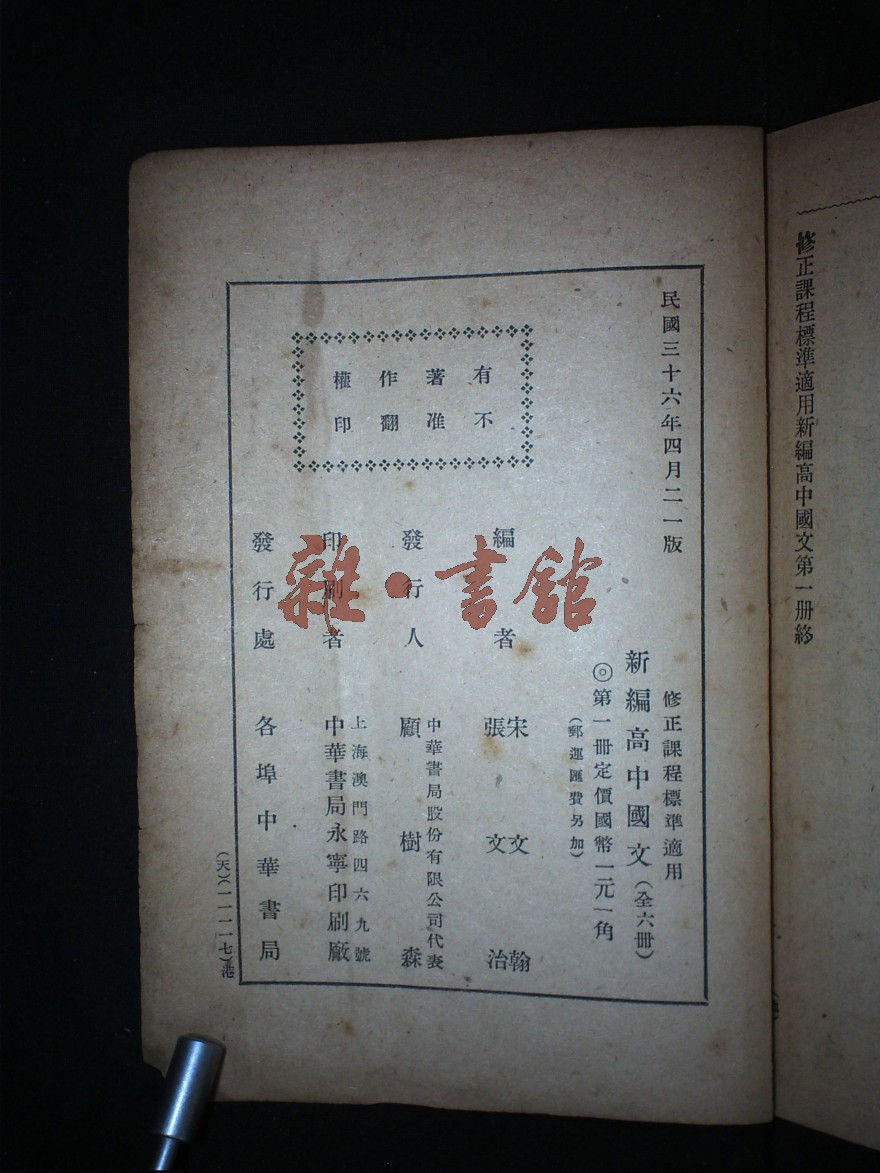 修正課程標準適用新編高中國文第一册終
民國三十六年四月二一版
修正課程標準適用
新編高中國文（全六冊）
◎第一冊定價國幣二元一角
（郵運匯費另加）
有著作權
不准翻印
編者
宋文翰
張文治
發行人
中華書局股份有限公司代表
顧樹森
印刷者
上海澳門路四六九號
中華書局永寧印刷廠
發行處
各埠中華書局
雜·書館